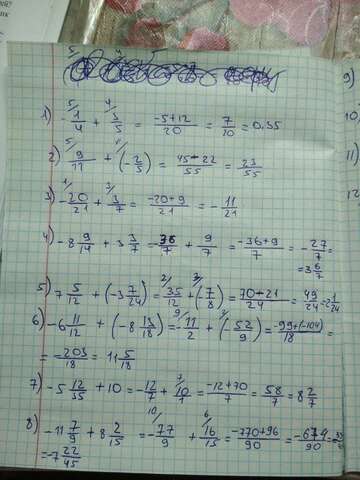 1) -1/4 + 3/5 = (-5+12)/20 = 7/20 = 0,35
2) 9/11 + (-2/5) = (45-22)/55 = 23/55
3) -20/21 + 3/7 = (-20+9)/21 = -11/21
4) -8 9/14 + 3 3/7 = 36/7 + 9/7 = (-36+9)/7 = -27/7 =
= 3 6/7
5) 7 5/12 + (-3 7/24) = 35/12 + (7/8) = (70-21)/24 = 49/24 = 2 1/24
6) -6 11/12 + (-8 13/18) = -11/2 + (-52/9) = (-99+(-104))/18 =
= -203/18 = 11 5/18
7) -5 12/35 + 10 = -12/7 + 10/1 = (-12+70)/7 = 58/7 = 8 2/7
8) -11 7/9 + 8 2/15 = -77/9 + 16/15 = (-770+96)/90 = -674/90 =
= -7 22/45
9)
10)
11)
12